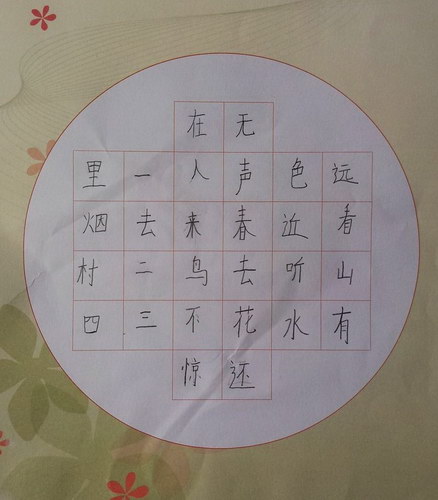 在无
里一人声色远
烟去来春近看
村二鸟去听山
四三不花水有
惊还